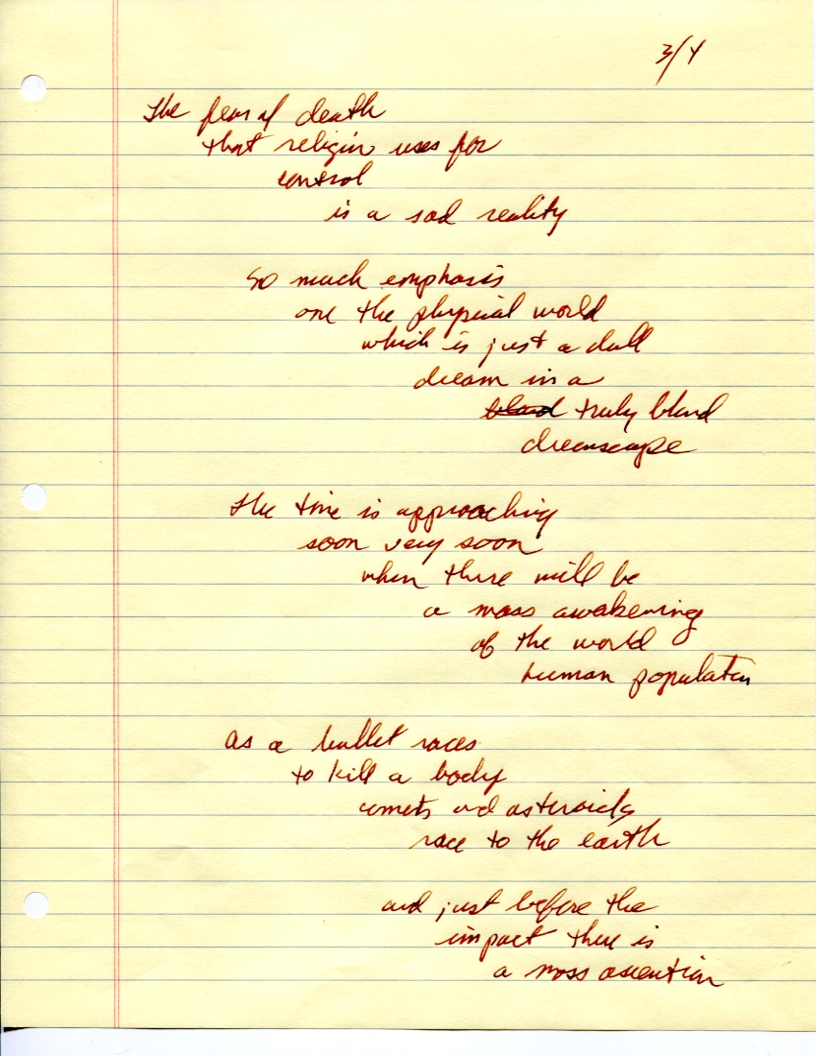 3/4
The fear of death
that religion uses for
control
is a sad reality
So much emphasis
one the physical world
which is just a dull
dream in a
bland truly bland
dreamscape
The time is approaching
soon very soon
when there will be
a mass awakening
of the world
human population
as a bullet races
to kill a body
comets and asteroids
race to the earth
and just before the
impact there is
a mass ascention